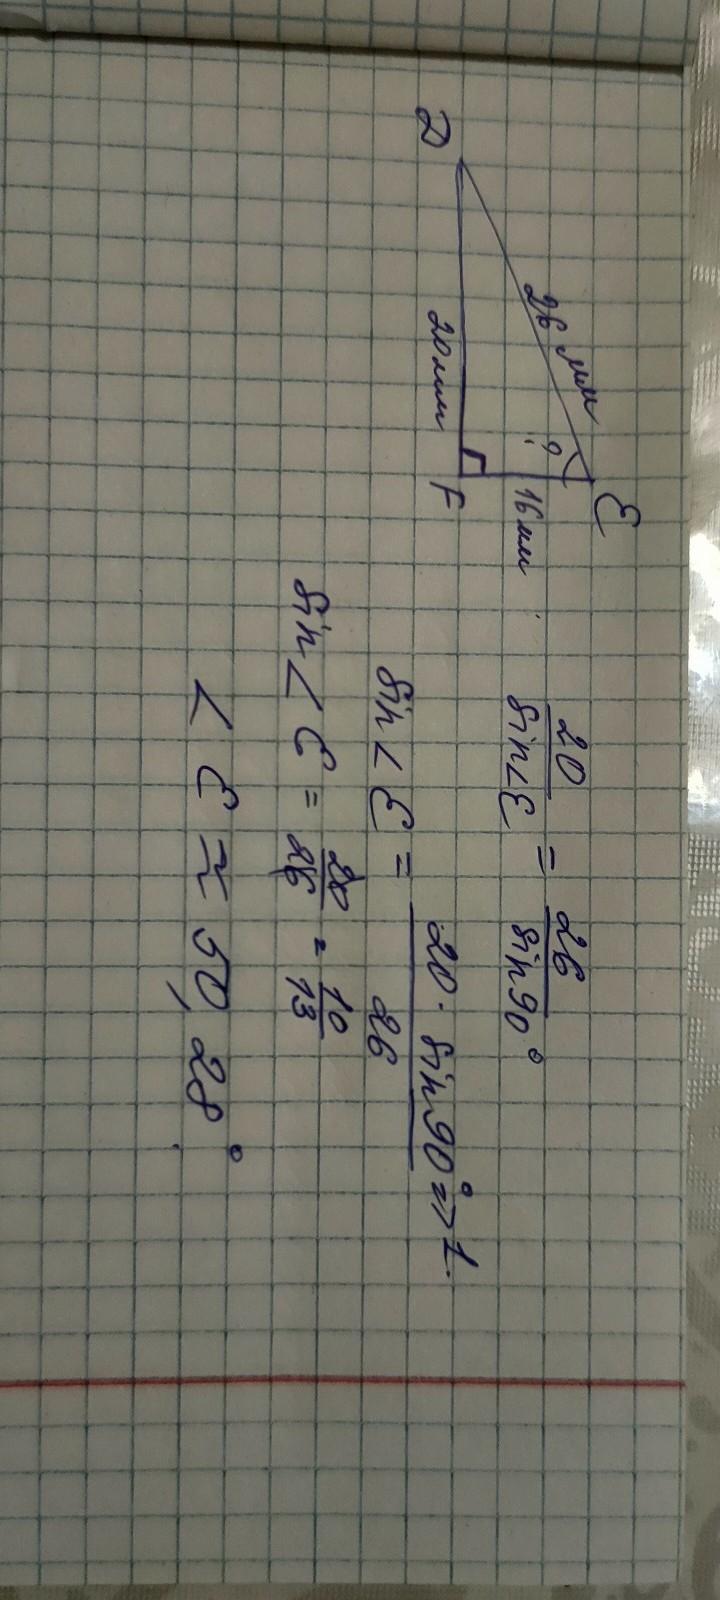 E
26 мм
?
16 мм
D
20 мм
F
20/sin<E = 26/sin90°
sin<E = 20·sin90°=>1/26
sin<E = 20/26 = 10/13
<E ≈ 50,28°